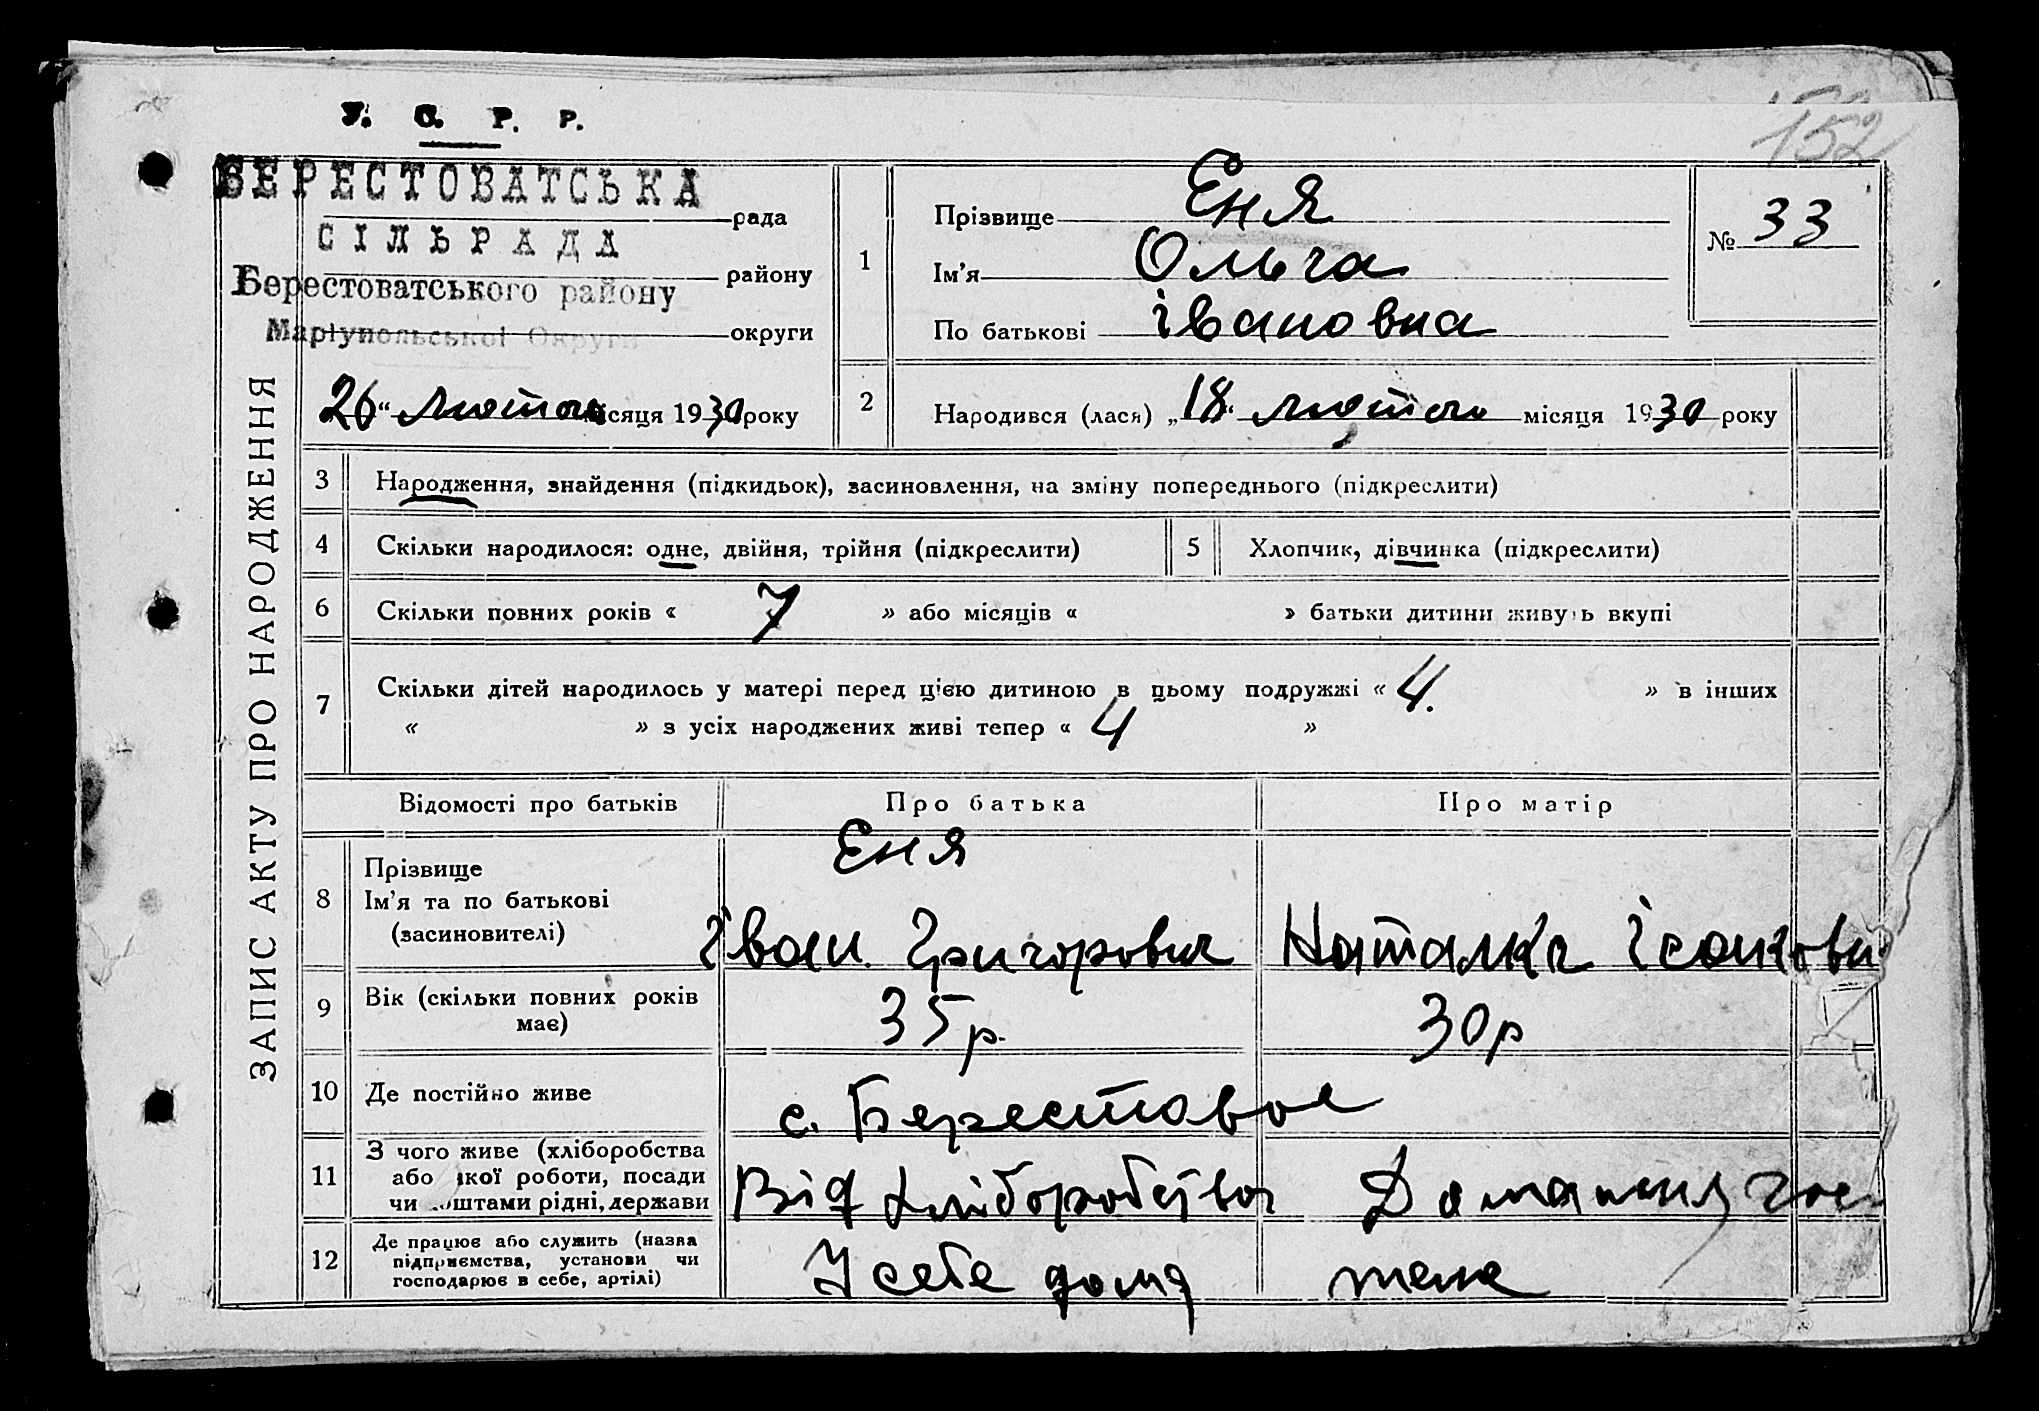 152
У. С. Р. Р.
БЕРЕСТОВАТСЬКА рада
СІЛЬРАДА району
Берестоватського району
Маріупольської Округи округи
26 “ лютого місяця 1930 року
ЗАПИС АКТУ ПРО НАРОДЖЕННЯ
1 Прізвище Еня
Ім’я Ольга
По батькові івановна
№ 33
2 Народився (лася) „18“ лютого місяця 1930 року
3 Народження, знайдення (підкидьок), засиновлення, на зміну попереднього (підкреслити)
4 Скільки народилося: одне, двійня, трійня (підкреслити) 5 Хлопчик, дівчинка (підкреслити)
6 Скільки повних років « 7 » або місяців « » батьки дитини живуть вкупі
7 Скільки дітей народилось у матері перед цією дитиною в цьому подружжі « 4. » в інших
« » з усіх народжених живі тепер « 4 »
Відомості про батьків Про батька Про матір
8 Прізвище Еня
Ім’я та по батькові
(засновителі) Іван Григорович Наталка
9 Вік (скільки повних років
має) 35 р. 30 р
10 Де постійно живе с. Берестовое
11 З чого живе (хліборобства
або якої роботи, посади
чи коштами рідні, держави Від хліборобства Домашня
12 Де працює або служить (назва
підприємства, установи чи
господарює в себе, артілі) У себе дома